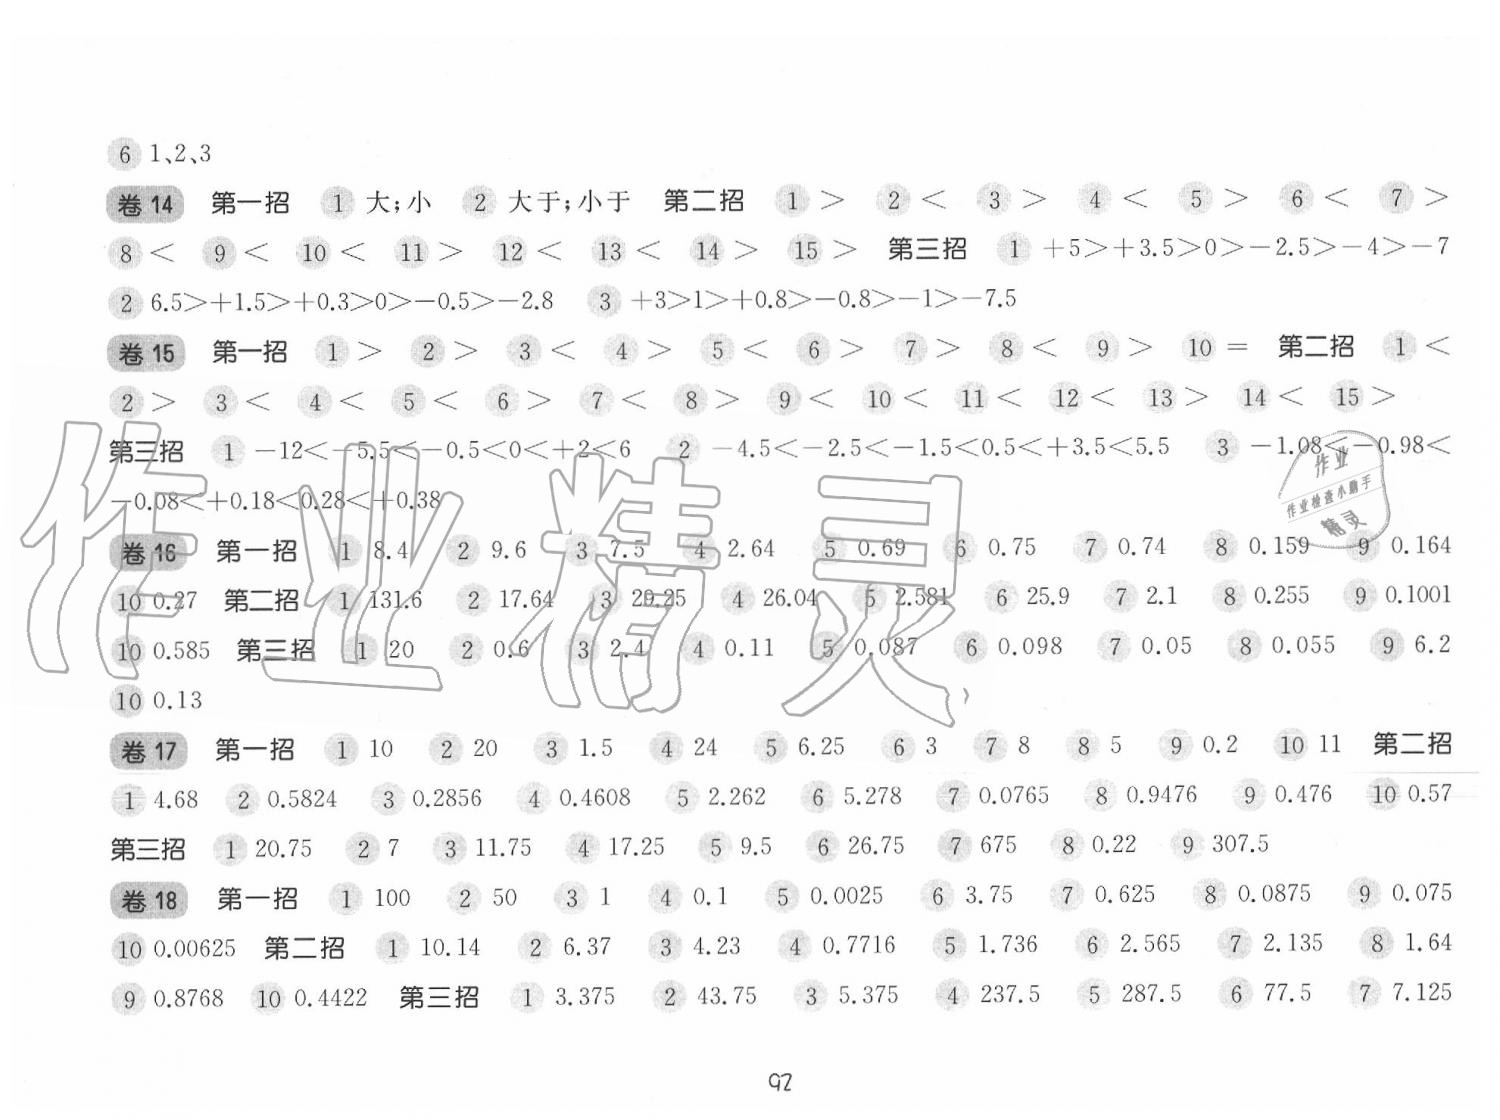 6 1、2、3
卷 14 第一招 1 大；小 2 大于；小于 第二招 1 > 2 < 3 > 4 < 5 > 6 < 7 >
8 < 9 < 10 < 11 > 12 < 13 < 14 > 15 > 第三招 1 +5>+3.5>0>-2.5>-4>-7
2 6.5>+1.5>+0.3>0>-0.5>-2.8 3 +3>1>+0.8>-0.8>-1>-7.5
卷 15 第一招 1 > 2 > 3 < 4 > 5 < 6 > 7 > 8 < 9 > 10 = 第二招 1 <
2 > 3 < 4 < 5 < 6 > 7 < 8 > 9 < 10 < 11 < 12 < 13 > 14 < 15 >
第三招 1 -12<-5.5<-0.5<0<+2<6 2 -4.5<-2.5<-1.5<0.5<+3.5<5.5 3 -1.08<-0.98<
-0.08<+0.18<0.28<+0.38
卷 16 第一招 1 8.4 2 9.6 3 7.5 4 2.64 5 0.69 6 0.75 7 0.74 8 0.159 9 0.164
10 0.27 第二招 1 131.6 2 17.64 3 29.25 4 26.04 5 2.581 6 25.9 7 2.1 8 0.255 9 0.1001
10 0.585 第三招 1 20 2 0.6 3 2.4 4 0.11 5 0.087 6 0.098 7 0.05 8 0.055 9 6.2
10 0.13
卷 17 第一招 1 10 2 20 3 1.5 4 24 5 6.25 6 3 7 8 8 5 9 0.2 10 11 第二招
1 4.68 2 0.5824 3 0.2856 4 0.4608 5 2.262 6 5.278 7 0.0765 8 0.9476 9 0.476 10 0.57
第三招 1 20.75 2 7 3 11.75 4 17.25 5 9.5 6 26.75 7 675 8 0.22 9 307.5
卷 18 第一招 1 100 2 50 3 1 4 0.1 5 0.0025 6 3.75 7 0.625 8 0.0875 9 0.075
10 0.00625 第二招 1 10.14 2 6.37 3 4.23 4 0.7716 5 1.736 6 2.565 7 2.135 8 1.64
9 0.8768 10 0.4422 第三招 1 3.375 2 43.75 3 5.375 4 237.5 5 287.5 6 77.5 7 7.125
92
作业精灵
作业
作业检查小助手
精灵